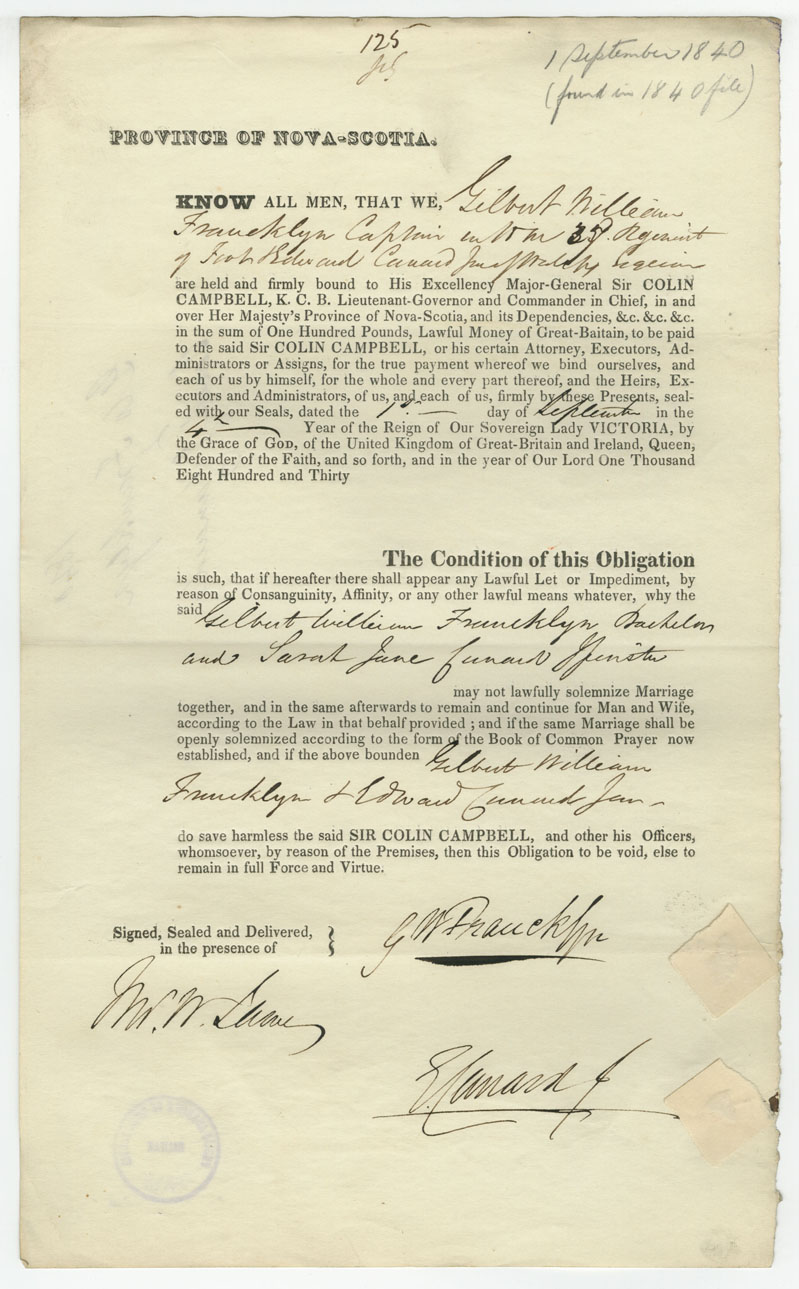 125
1 September 1840
(found in 1840 file)
PROVINCE OF NOVA-SCOTIA.
KNOW ALL MEN, THAT WE, Gilbert William
Francklyn Captain in H M 37 Regiment
of Foot & Edward Cunard Junr of Halifax
are held and firmly bound to His Excellency Major-General Sir COLIN
CAMPBELL, K. C. B. Lieutenant-Governor and Commander in Chief, in and
over Her Majesty's Province of Nova-Scotia, and its Dependencies, &c. &c. &c.
in the sum of One Hundred Pounds, Lawful Money of Great-Baitain, to be paid
to the said Sir COLIN CAMPBELL, or his certain Attorney, Executors, Ad-
ministrators or Assigns, for the true payment whereof we bind ourselves, and
each of us by himself, for the whole and every part thereof, and the Heirs, Ex-
ecutors and Administrators, of us, and each of us, firmly by these Presents, seal-
ed with our Seals, dated the 1st day of September in the
4th Year of the Reign of Our Sovereign Lady VICTORIA, by
the Grace of GOD, of the United Kingdom of Great-Britain and Ireland, Queen,
Defender of the Faith, and so forth, and in the year of Our Lord One Thousand
Eight Hundred and Thirty
The Condition of this Obligation
is such, that if hereafter there shall appear any Lawful Let or Impediment, by
reason of Consanguinity, Affinity, or any other lawful means whatever, why the
said Gilbert William Francklyn Bachelor
and Sarah Jane Cunard Spinster
may not lawfully solemnize Marriage
together, and in the same afterwards to remain and continue for Man and Wife,
according to the Law in that behalf provided ; and if the same Marriage shall be
openly solemnized according to the form of the Book of Common Prayer now
established, and if the above bounden Gilbert William
Francklyn & Edward Cunard Jun
do save harmless the said SIR COLIN CAMPBELL, and other his Officers,
whomsoever, by reason of the Premises, then this Obligation to be void, else to
remain in full Force and Virtue.
Signed, Sealed and Delivered,
in the presence of
G W Francklyn
W.
E Cunard J